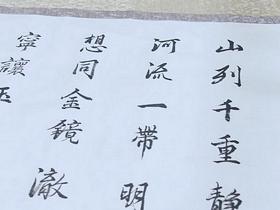 山列千重静
河流一带明
想同金鏡澈
寧讓玉